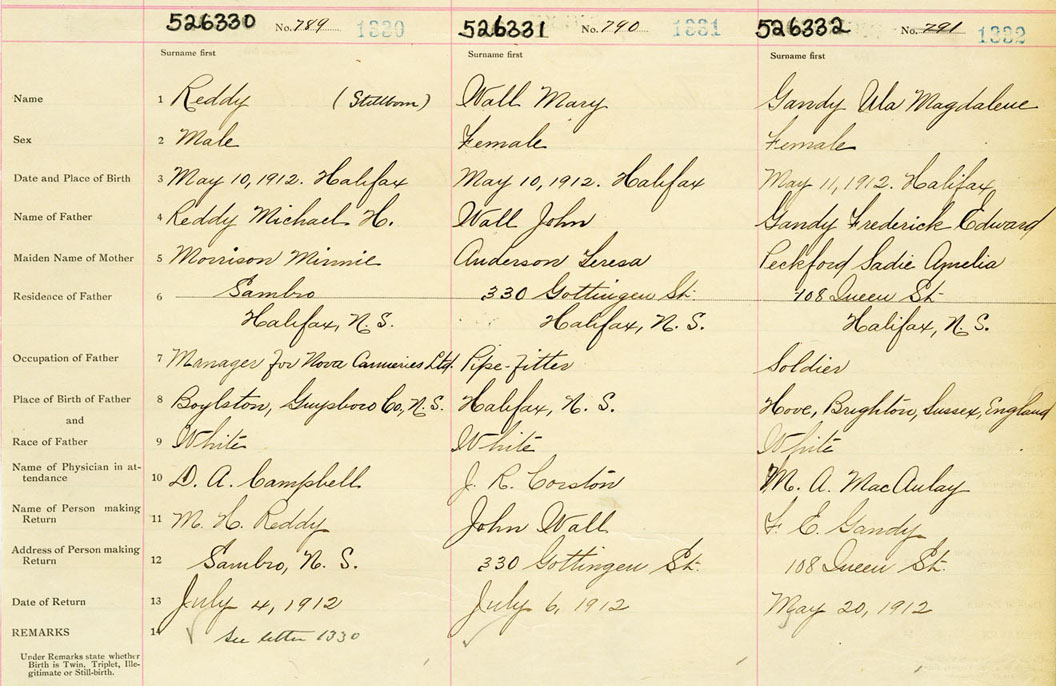 526330 No. 789 1330 526331 No. 790 1331 526332 No. 791 1332
Surname first Surname first Surname first
Name 1 Reddy (Stillborn) Wall Mary Gandy Ula Magdalene
Sex 2 Male Female Female
Date and Place of Birth 3 May 10, 1912. Halifax May 10, 1912. Halifax May 11, 1912. Halifax
Name of Father 4 Reddy Michael H. Wall John Gandy Frederick Edward
Maiden Name of Mother 5 Morrison Minnie Anderson Teresa Peckford Sadie Amelia
Residence of Father 6 Sambro 330 Gottingen St. 108 Queen St.
Halifax, N. S. Halifax, N. S. Halifax, N. S.
Occupation of Father 7 Manager for Nova Canneries Ltd. Pipe-fitter Soldier
Place of Birth of Father 8 Boylston, Guysboro Co, N. S. Halifax, N. S. Hove, Brighton, Sussex, England
and
Race of Father 9 White White White
Name of Physician in at-
tendance 10 D. A. Campbell J. R. Corston M. A. MacAulay
Name of Person making
Return 11 M. H. Reddy John Wall F. E. Gandy
Address of Person making
Return 12 Sambro, N. S. 330 Gottingen St. 108 Queen St.
Date of Return 13 July 4, 1912 July 6, 1912 May 20, 1912
REMARKS 14 See letter 1330
Under Remarks state whether
Birth is Twin, Triplet, Ille-
gitimate or Still-birth.